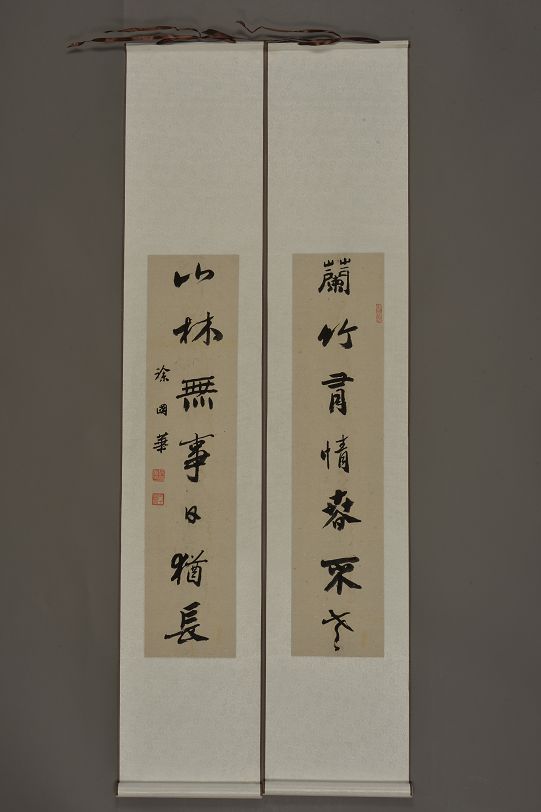 蘭竹有情春不老
山林無事日猶長
涂國華